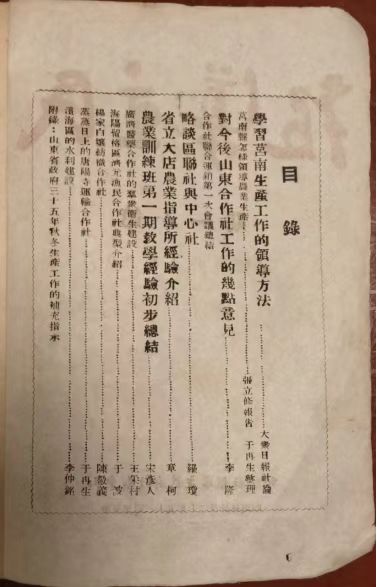 目錄
學習莒南生產工作的領導方法……大衆日報社論
莒南縣怎樣領導農業生產……張立修報告 于再生整理
對今後山東合作社工作的幾點意見……李
合作社聯合運銷第一次會議總結
略談區聯社與中心社……羅瓊
省立大店農業指導所經驗介紹……章柯
農業訓練班第一期教學經驗初步總結……宋彥人
廣濟醫藥合作社的羣衆衛生建設……王榮村
海陽留格區濟元漁民合作社典型介紹……于波
楊家白壤紡織合作社……陳敬義
蒸蒸日上的唐陽寺運輸合作社……于再生
濱海區的水利建設……李仲銘
附錄：山東省政府三十五年秋冬生產工作的補充指示